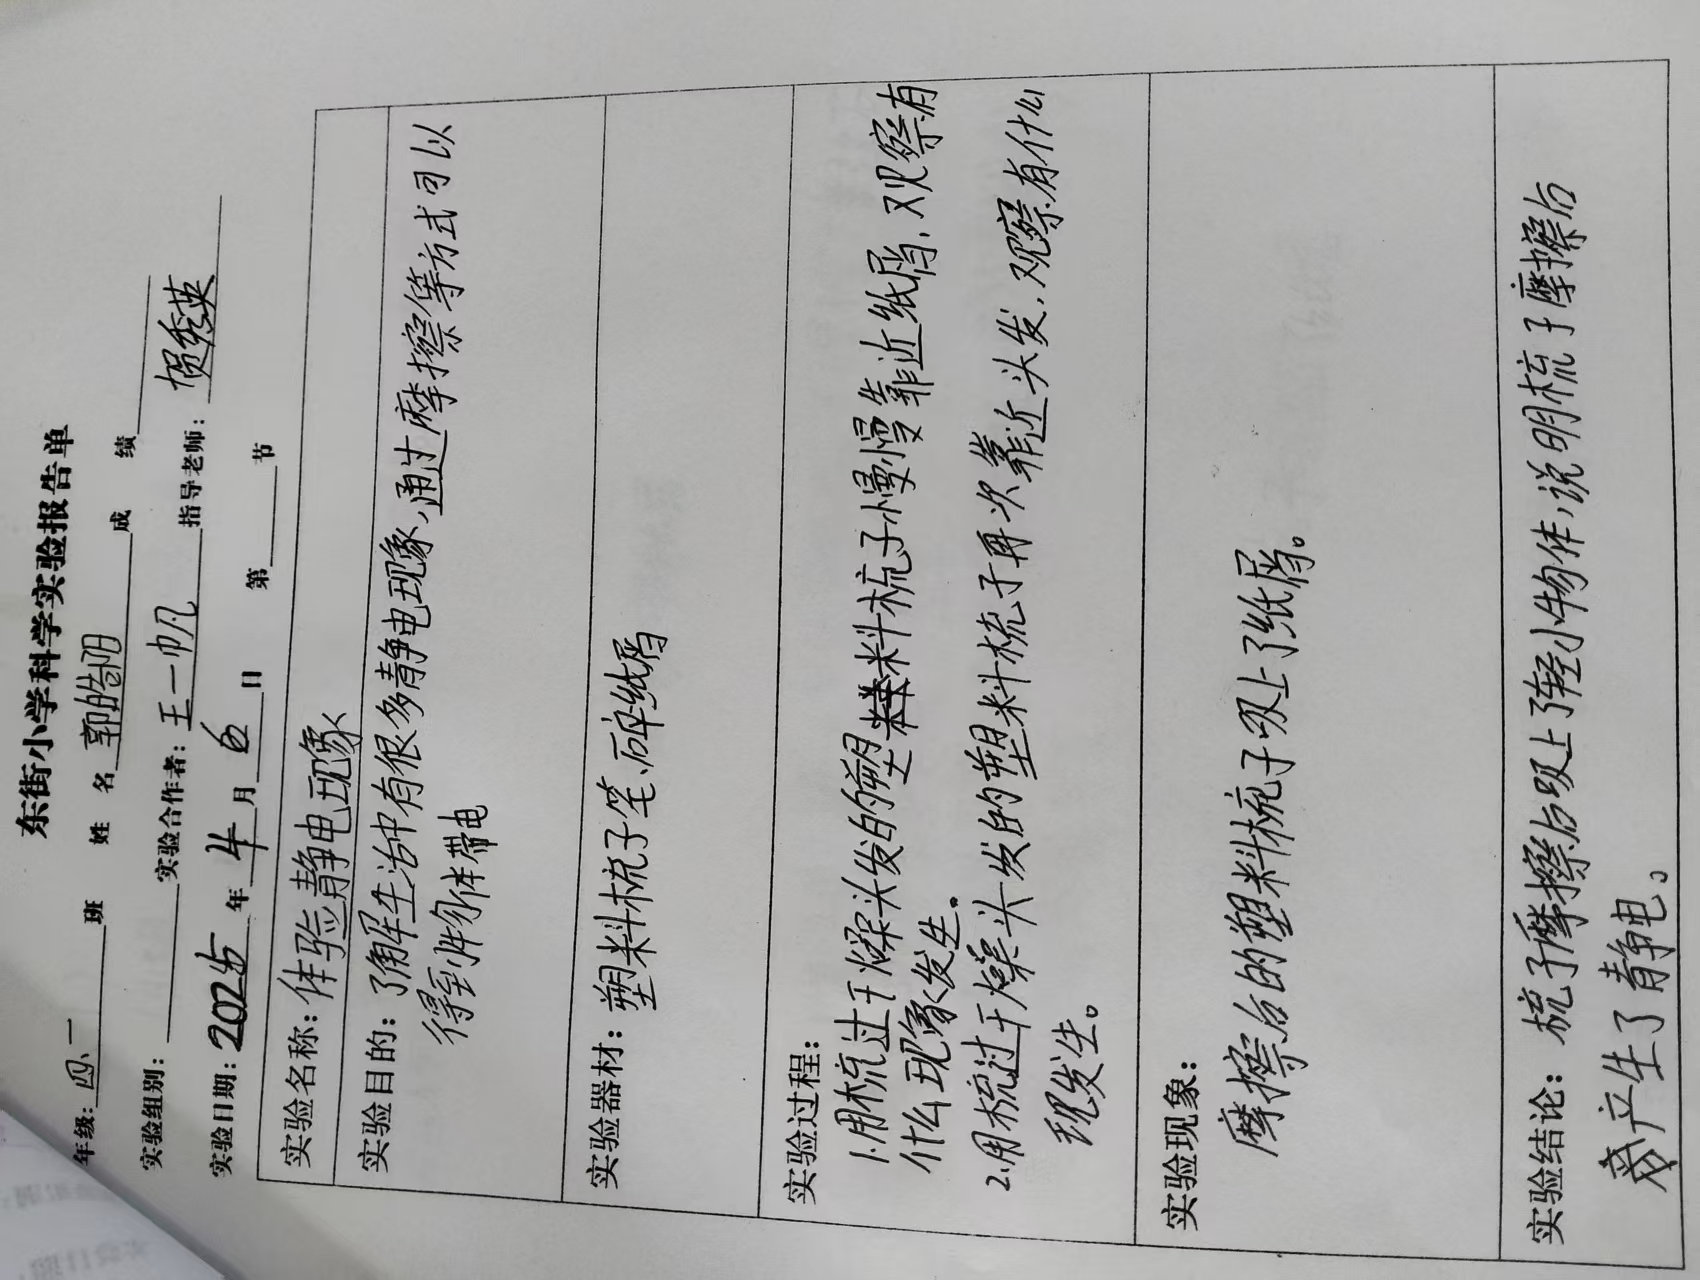 东街小学科学实验报告单
年级:四、一 班 姓 名 郭皓阳 成 绩
实验组别: 实验合作者:王一帆 指导老师:贺秀英
实验日期:2025年4月6日 第 节
实验名称:体验静电现象
实验目的:了解生活中有很多静电现象,通过摩擦等方式可以
得到物体带电
实验器材:塑料梳子笔、碎纸屑
实验过程:
1.用梳过干燥头发的塑料梳子慢慢靠近纸屑,观察有
什么现象发生。
2.用梳过干燥头发的塑料梳子再次靠近头发,观察有什么
现发生。
实验现象:
摩擦后的塑料梳子吸上了纸屑。
实验结论:梳子摩擦后吸上了轻小物件,说明梳子摩擦后
产生了静电。